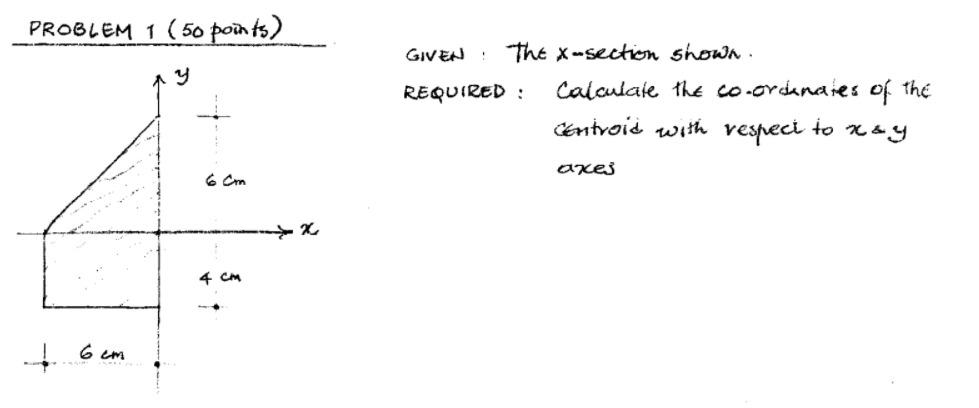 PROBLEM 1 (50 points)
GIVEN : The x-section shown.
REQUIRED : Calculate the co-ordinates of the
centroid with respect to x & y
axes
y
6 cm
x
4 cm
6 cm